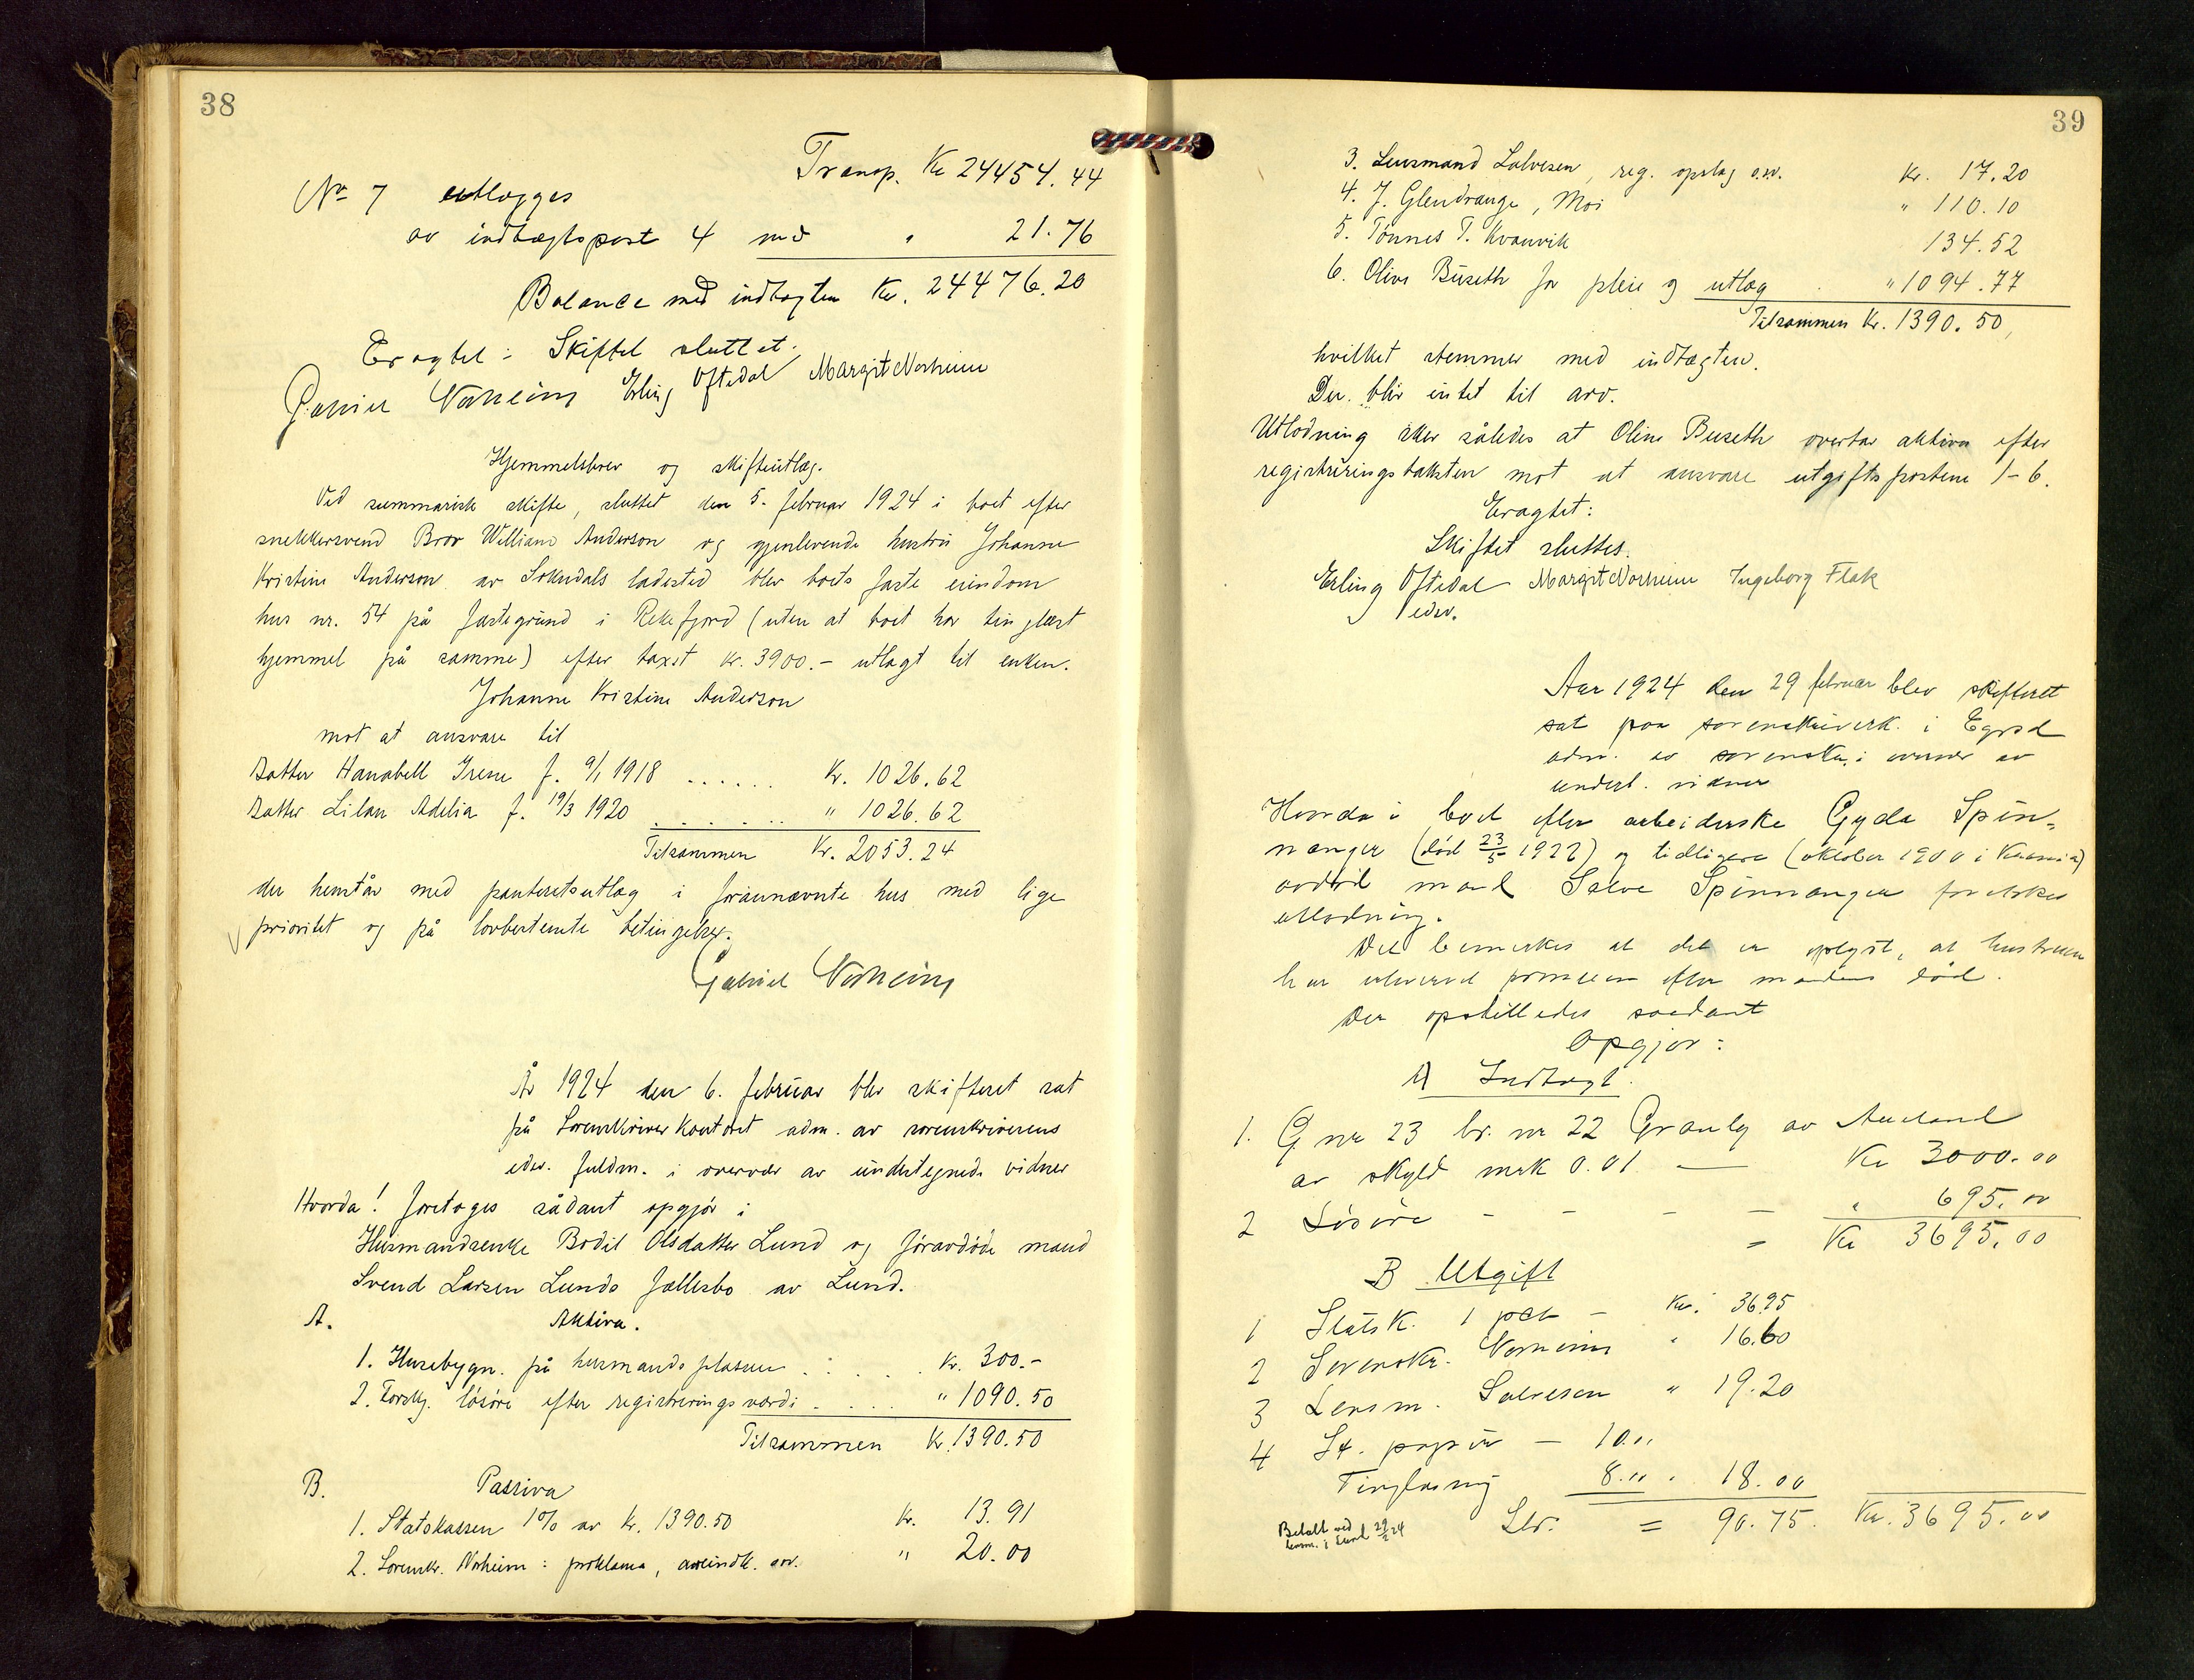 38
Transp. Kr 24454.44
No 7 utlægges
av indtægtspost 4 med " 21.76
Balance med indtægten Kr. 24476.20
Eragtet: Skiftet sluttet.
Gabriel Norheim Erling Oftedal Margit Norheim
Hjemmelsbrev og skifteutlæg.
Ved summarisk skifte, sluttet den 5. februar 1924 i boet efter
snekkersvend Bror William Anderson og gjenlevende hustru Johanne
Kristine Anderson av Sokndals ladested blev boets faste eiendom
hus nr. 54 på festegrund i Rekefjord (uten at boet har tinglæst
hjemmel på samme) efter taxst kr. 3900.- utlagt til enken.
Johanne Kristine Anderson
mot at ansvare til
Datter Hanabell Irene f. 9/1 1918 ..... Kr. 1026.62
Datter Lilan Adelia f. 19/3 1920 ...... " 1026.62
Tilsammen Kr. 2053.24
der henstår med panteretsutlæg i forannævnte hus med lige
prioritet og på lovbestemte betingelser.
Gabriel Norheim
År 1924 den 6. februar blev skifteret sat
på Sorenskriverkontoret adm. av sorenskriverens
edsv. fuldm. i overvær av undertegnede vidner
Hvorda! foretoges sådant opgjør i
Husmandsenke Bodil Olsdatter Lund og foravdøde mand
Svend Larsen Lunds fællesbo av Lund.
A. Aktiva.
1. Husebygn. på husmandsplassen ..... Kr. 300.-
2. Forskj. løsøre efter registreringsværdi .... " 1090.50
Tilsammen Kr. 1390.50
B. Passiva
1. Statskassen 1% av kr. 1390.50 Kr. 13.91
2. Sorenskr. Norheim: proklama, osv. " 20.00
39
3. Lensmand Salvesen, reg. opslag o.s.v. Kr. 17.20
4. J. Glendrange, Moi " 110.10
5. Tønnes T. Kvanvik 134.52
6. Oline Buseth for pleie og utlæg . " 1094.77
Tilsammen Kr. 1390.50,
hvilket stemmer med indtægten.
Der blir intet til arv.
Utlodning sker således at Oline Buseth overtar aktiva efter
registreringstaksten mot at ansvare utgiftspostene 1-6.
Eragtet:
Skiftet sluttes.
Erling Oftedal Margit Norheim Ingeborg Flak
edsv.
Aar 1924 den 29 februar blev skifteret
sat paa sorenskriverk. i Egrsd
adm. av sorenskr. i overvær av
undert. vidner
Hvorda i boet efter arbeiderske Gyda Spin-
nanger (død 23/5 1922) og tidligere (oktober 1900 i
avdød mand Salve Spinnanger foretokes
utlodning.
Det bemerkes at det er oplyst, at hustruen
har erhvervet efter mandens død.
Der opstilledes saadant
Opgjør:
A) Indtægt.
1. G nr 23 br. nr 22 Granly av Aueland
av skyld mrk 0.01 — Kr 3000.00
2 Løsøre - - - - " 695.00
= Kr 3695.00
B Utgift
1 Statsk. 1 pct - Kr. 36.95
2 Sorenskr. Norheim " 16.60
3 Lensm. Salvesen " 19.20
4 St. papir - 10.00
Tinglæsning 8.00 " 18.00
= 90.75. Kr. 3695.00
Betalt ved
lensm. i 29/2 24